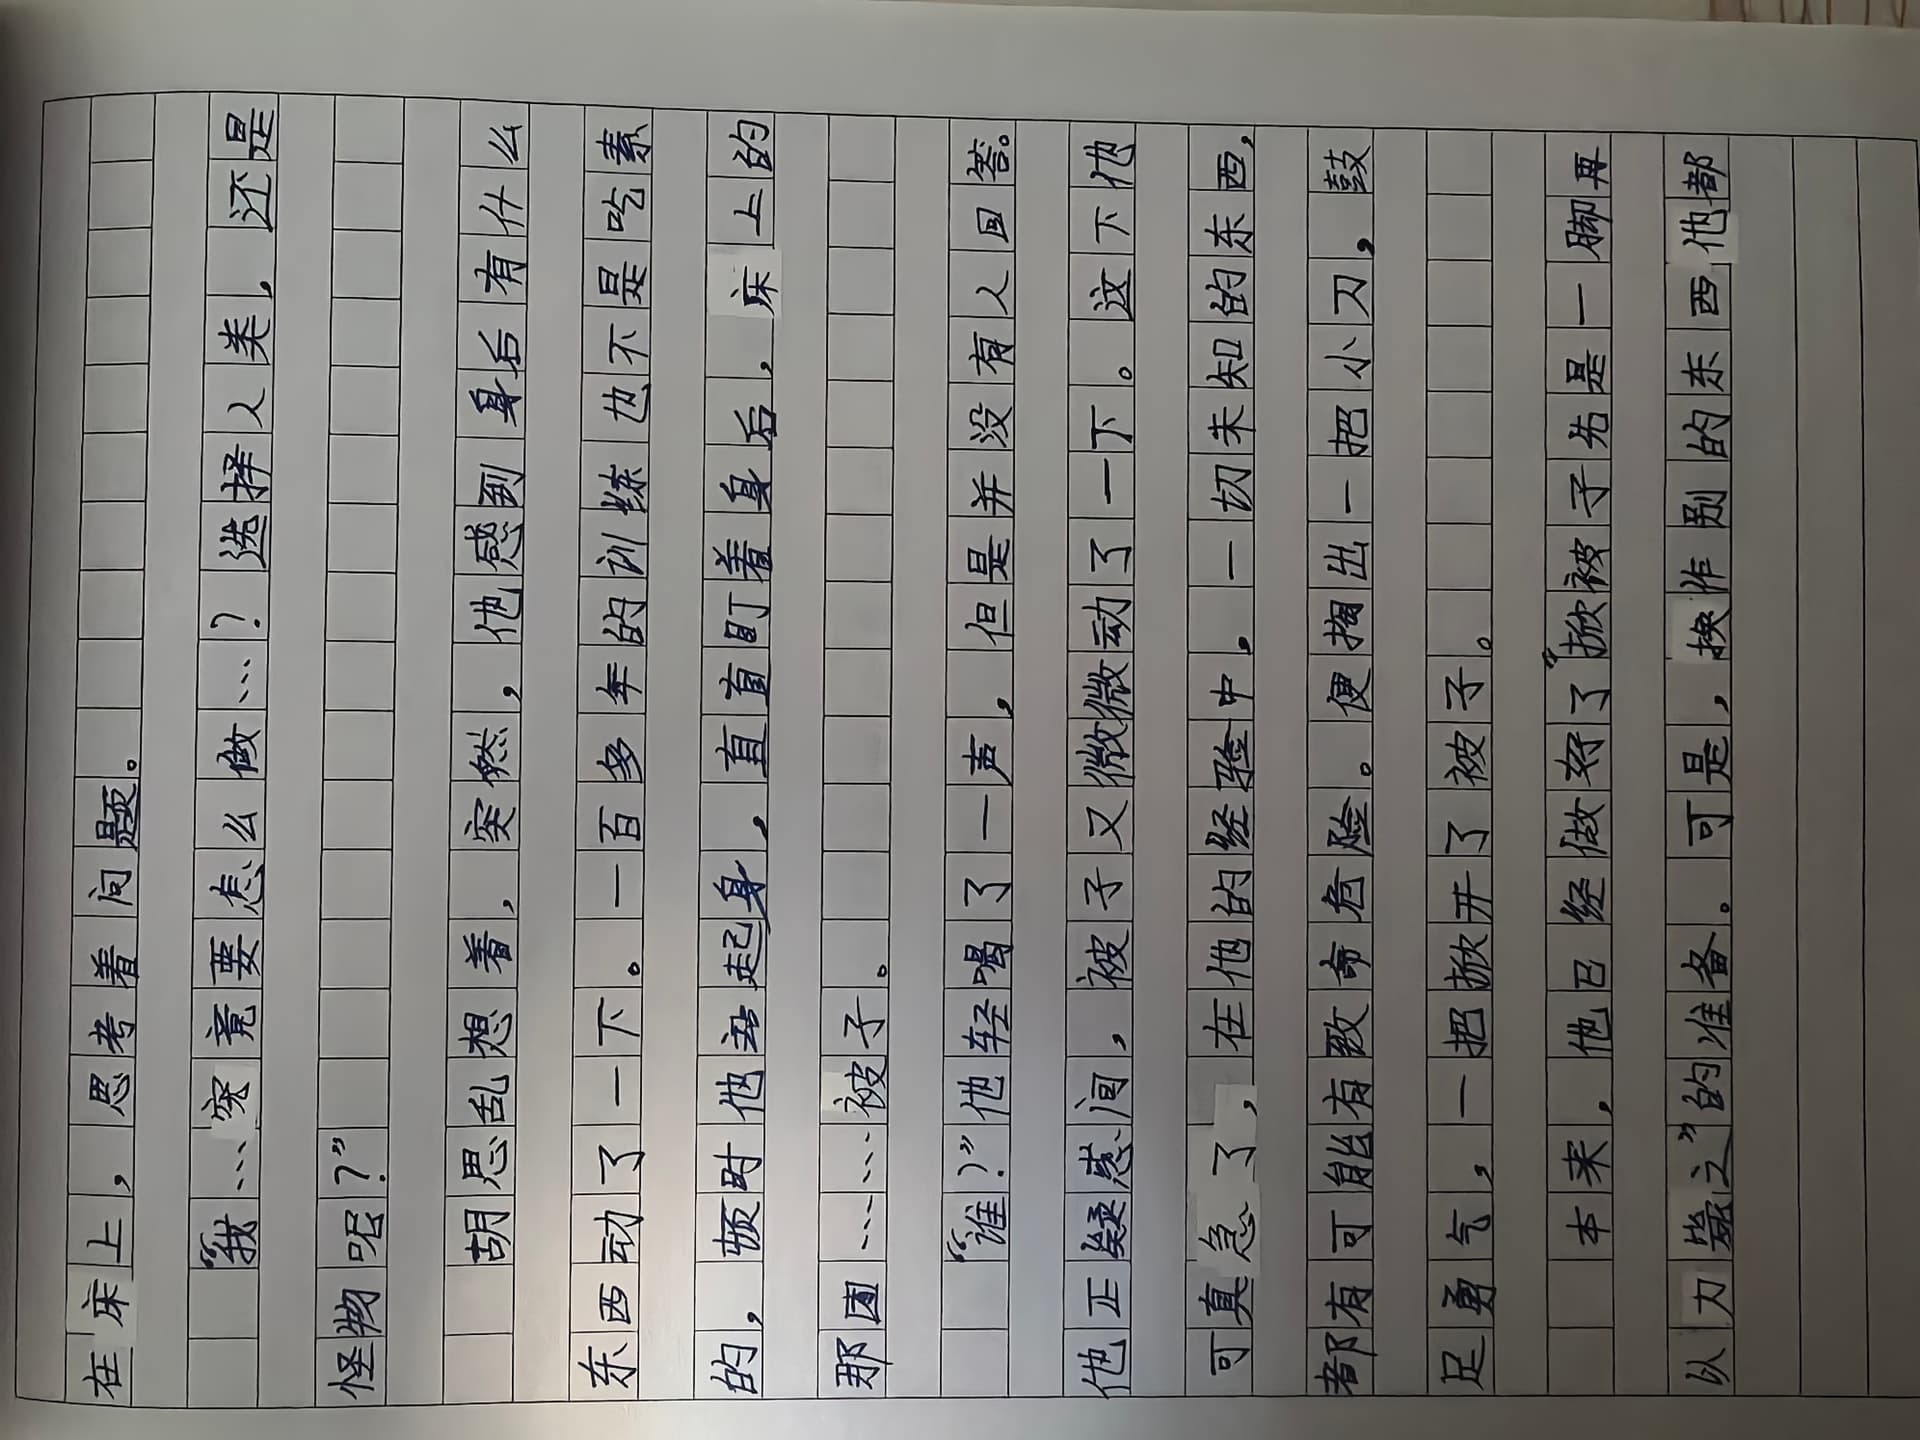 在床上，思考着问题。
“我…究竟要怎么做…？选择人类，还是
怪物呢？”
胡思乱想着，突然，他感到身后有什么
东西动了一下。一百多年的训练也不是吃素
的，顿时他站起身，直直盯着身后，床上的
那团……被子。
“谁？”他轻喝了一声，但是并没有人回答。
他正疑惑间，被子又微微动了一下。这下他
可真急了，在他的经验中，一切未知的东西，
都有可能有致命危险。便掏出一把小刀，鼓
足勇气，一把掀开了被子。
本来，他已经做好了“掀被子先是一脚再
以刀毙之”的准备。可是，换作别的东西他都